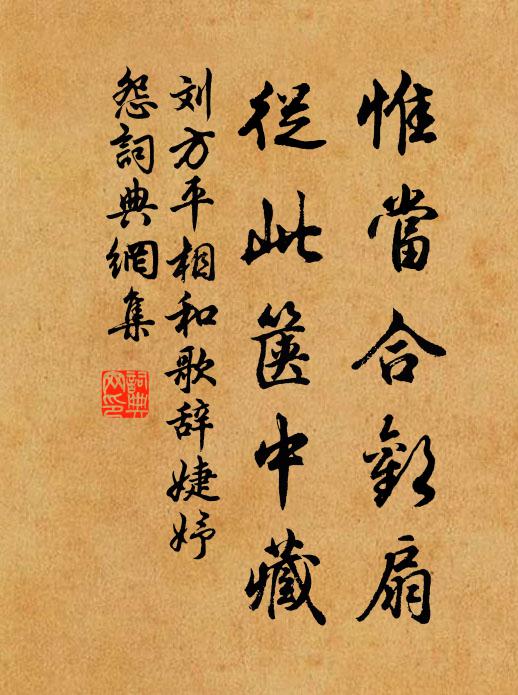 惟當合歡扇
從此篋中藏
刘方平相和歌辞婕妤
怨詞典網集
詞典網印